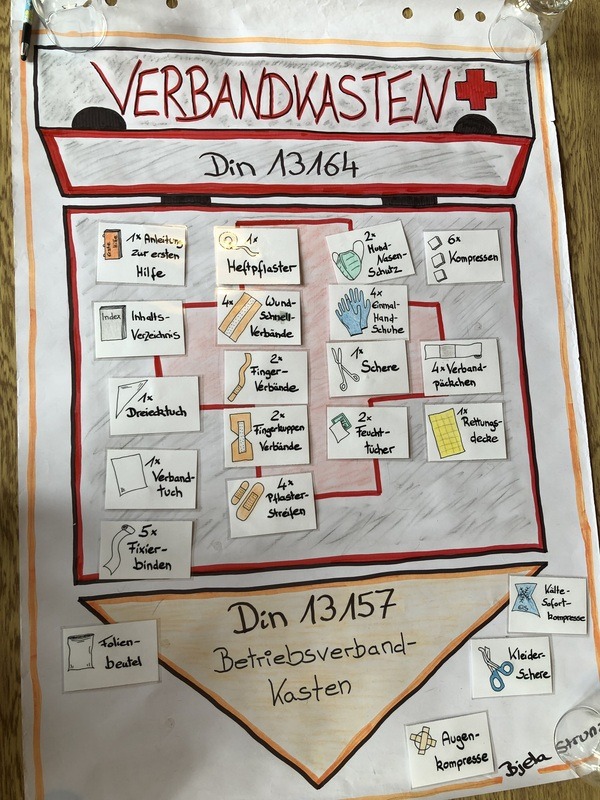 VERBANDKASTEN
Din 13164
1x Anleitung
zur ersten
Hilfe
Erste
Hilfe
1x
Heftpflaster
2x
Mund-
Nasen-
Schutz
6x
Kompressen
Index
Inhalts-
Verzeichnis
4x Wund-
Schnell-
Verbände
4x
Einmal-
Hand-
Schuhe
1x
Schere
4x Verband-
päckchen
1x
Dreiecktuch
2x
Finger-
Verbände
2x
Fingerkuppen
Verbände
2x
Feucht-
tücher
1x
Rettungs-
decke
1x
Verband-
tuch
4x
Pflaster-
Streifen
5x
Fixier-
binden
Din 13157
Betriebsverband-
Kasten
Folien-
beutel
Kälte-
Sofort-
kompresse
Kleider-
Schere
Augen-
kompresse